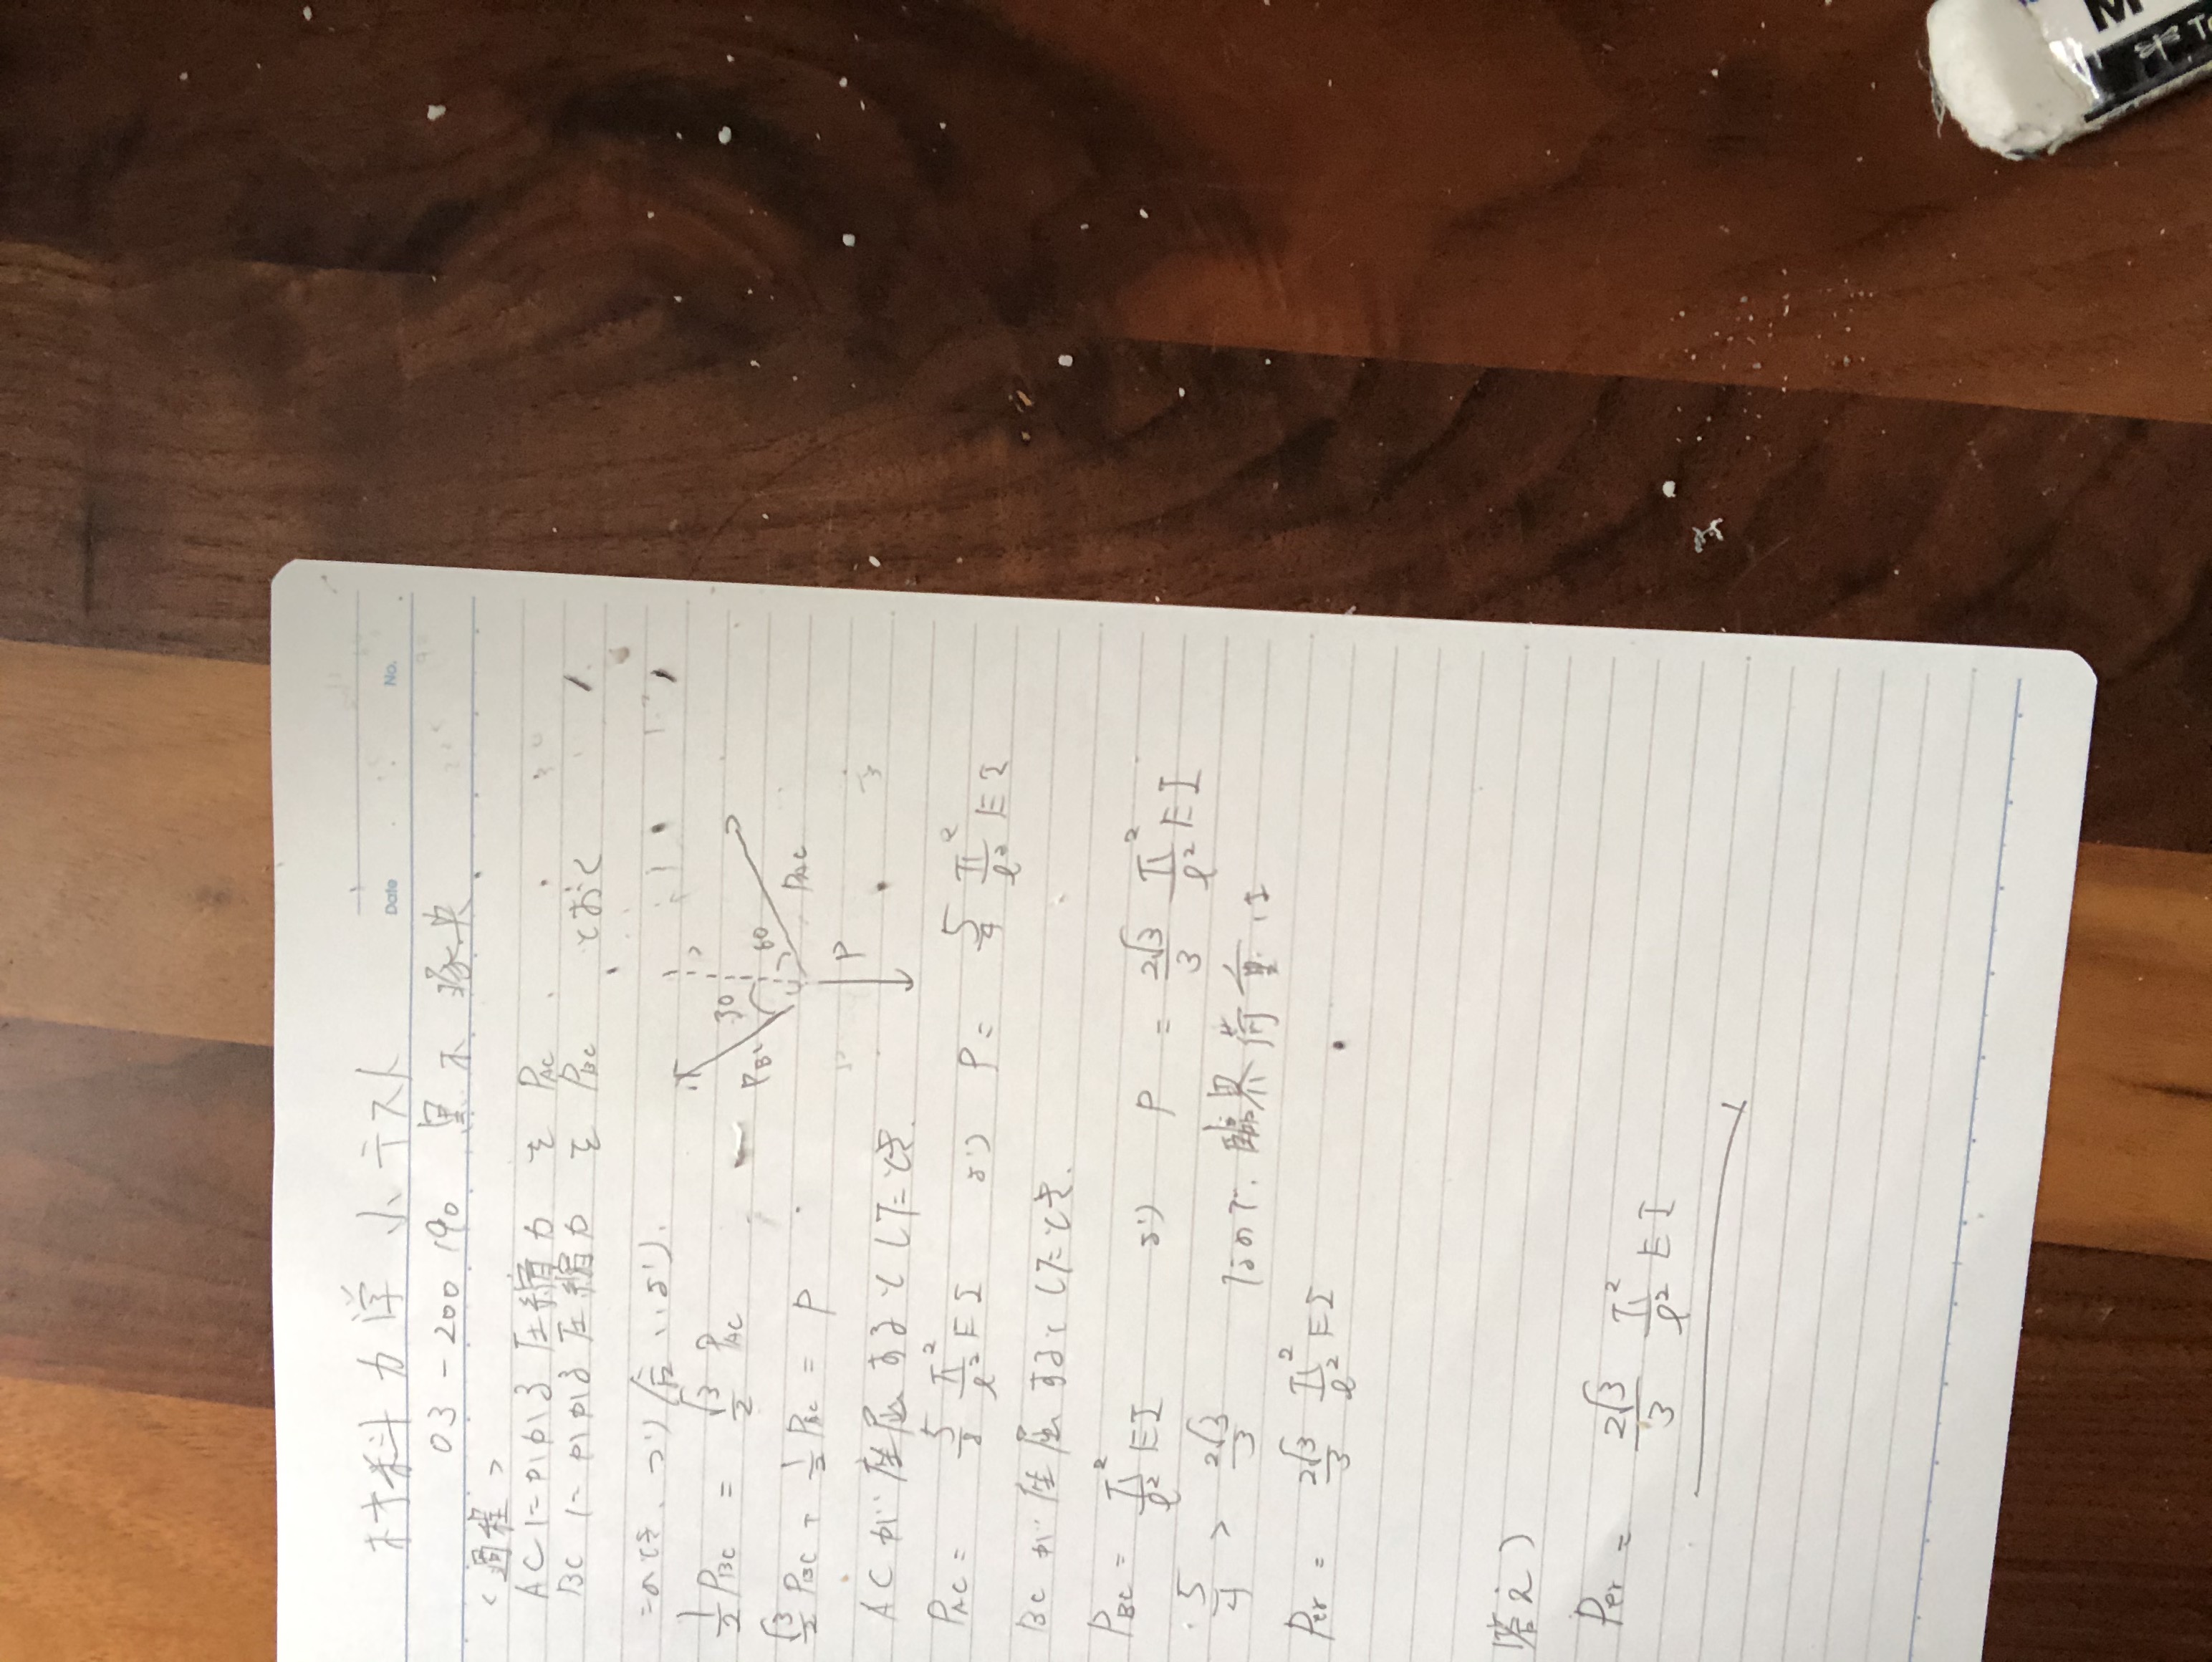 材料力学 小テスト
Date
No.
03-200190 黒木 琢央
<過程>
ACにかかる圧縮力をPAC
BCにかかる圧縮力をPBC とおく
このとき、つり合いより、
1/2 PBC = √3/2 PAC
√3/2 PBC + 1/2 PAC = P
30
60
PBC
PAC
P
ACが座屈するとしたとき、
PAC = 5/8 π²/ℓ² EI より P = 5/4 π²/ℓ² EI
BCが座屈するとしたとき、
PBC = π²/ℓ² EI より P = 2√3/3 π²/ℓ² EI
5/4 > 2√3/3 なので、臨界荷重は
Pcr = 2√3/3 π²/ℓ² EI
(答え)
Pcr = 2√3/3 π²/ℓ² EI
M